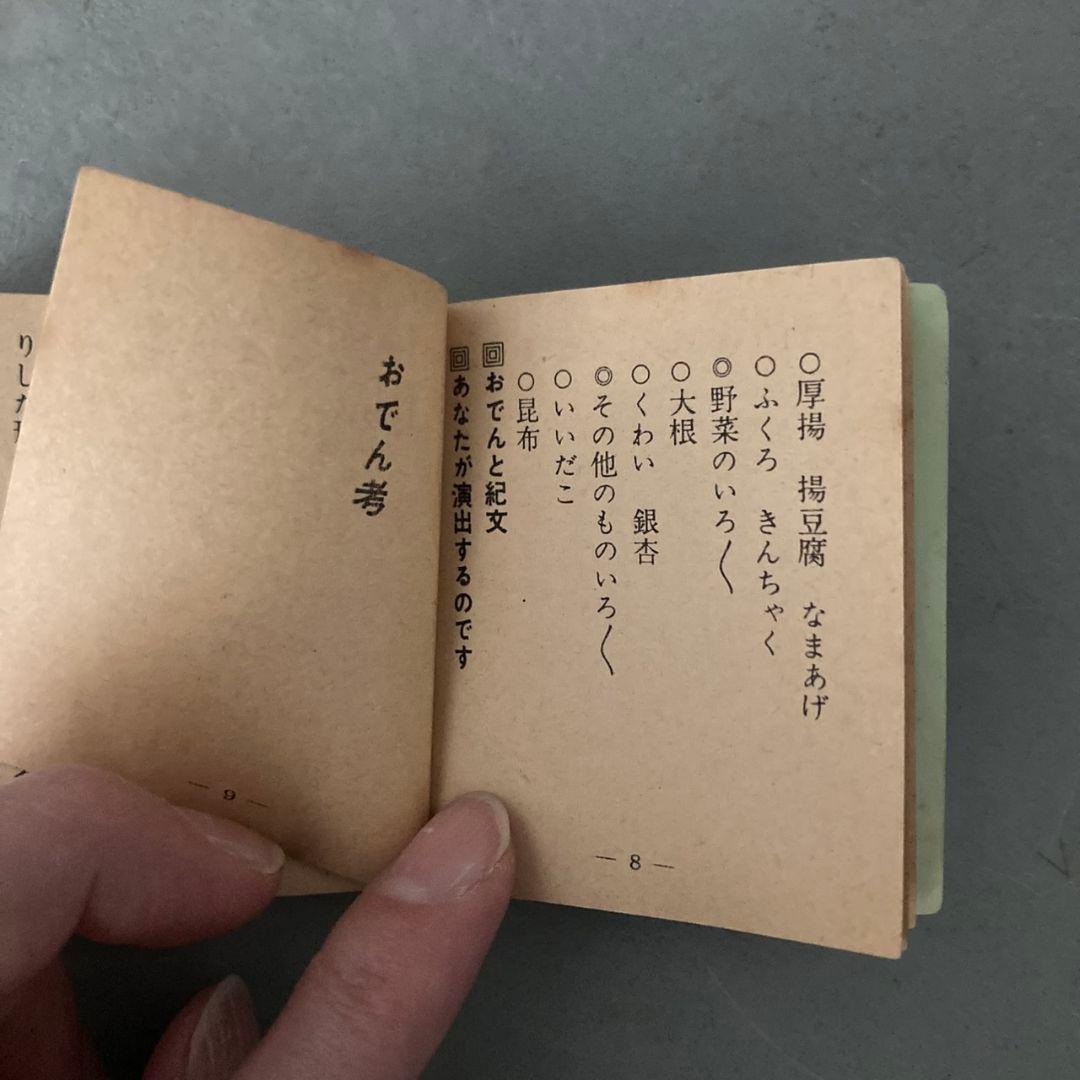 ○厚揚　揚豆腐　なまあげ
○ふくろ　きんちゃく
◎野菜のいろ〱
○大根
○くわい　銀杏
◎その他のものいろ〱
○いいだこ
○昆布
回おでんと紀文
回あなたが演出するのです
— 8 —
おでん考
— 9 —
りした